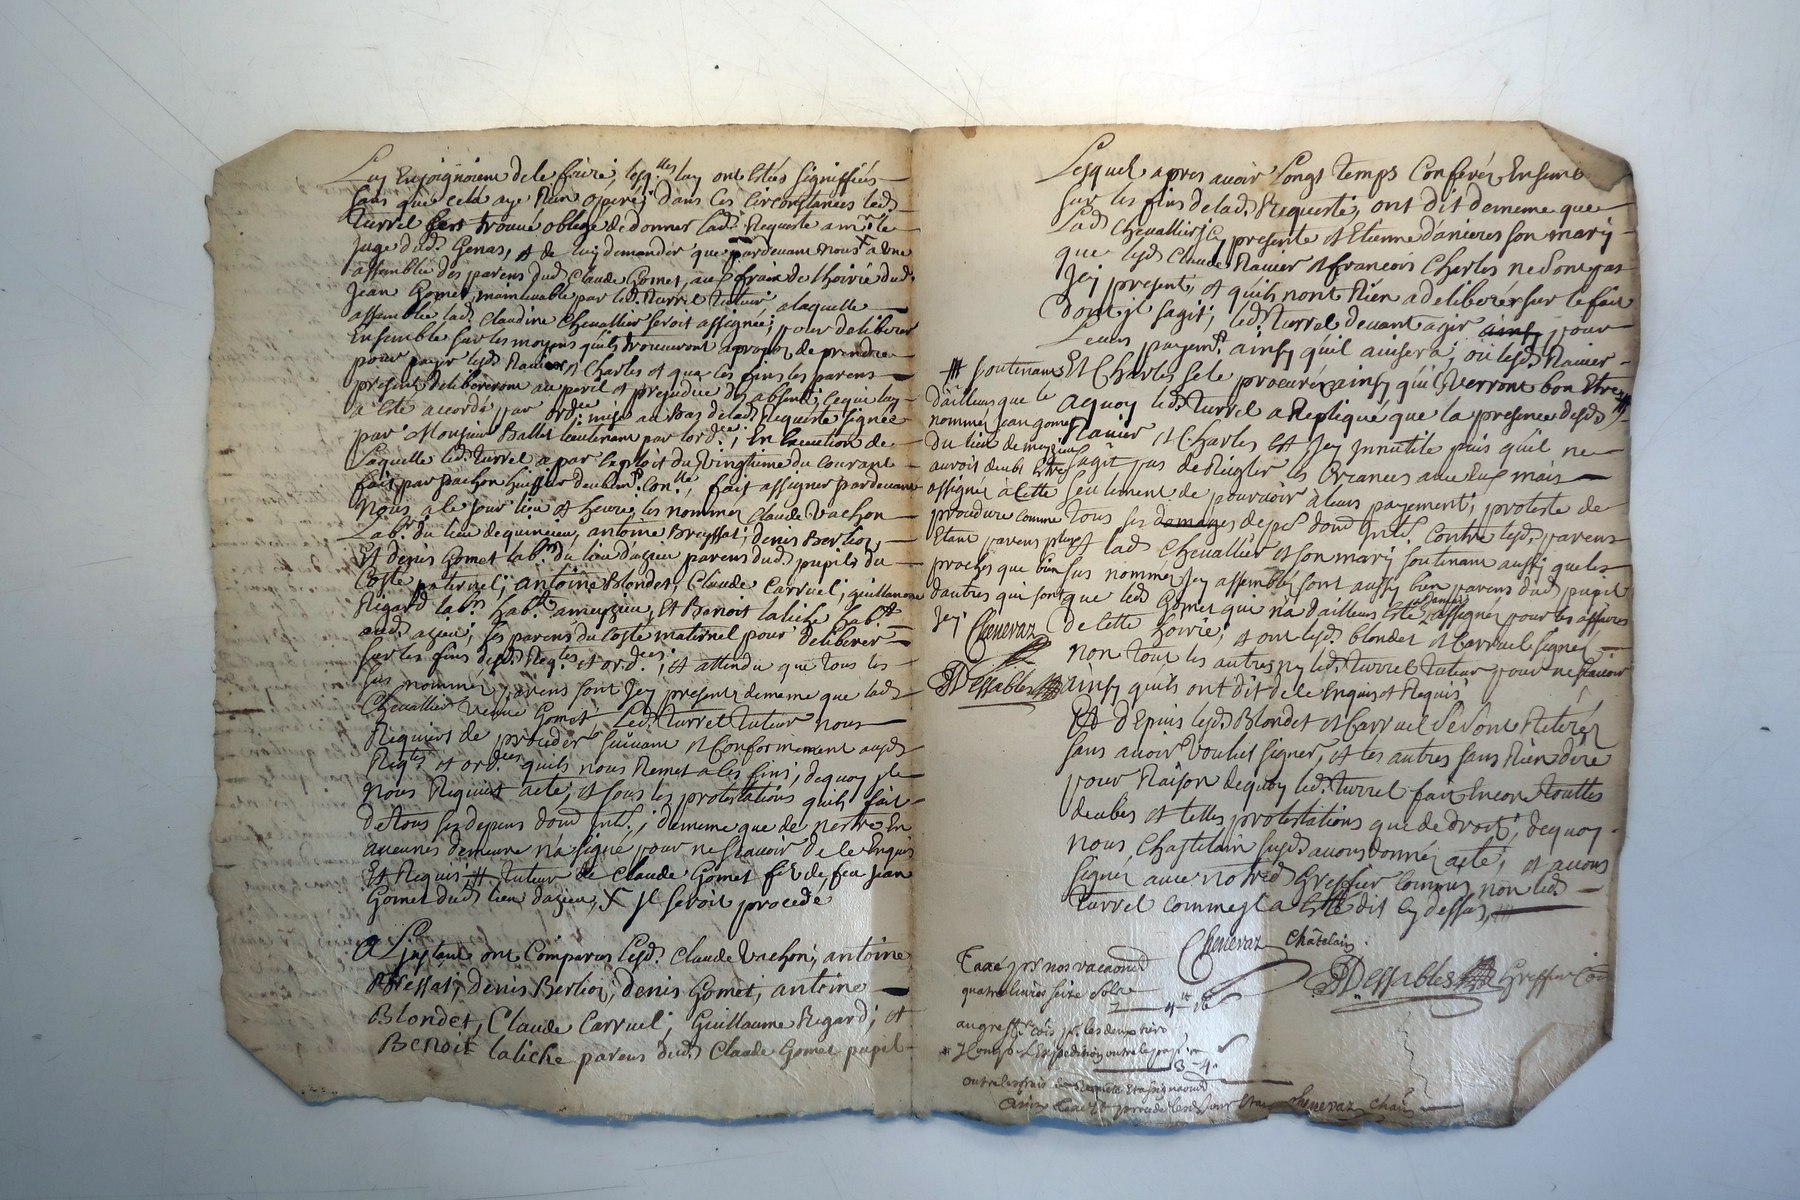 Luy Enjoignoient de le faire, lesq.lles luy ont Estées Signiffiées
Sans que cela aye Rien opéré; dans Ces Circonstances led.
turrel sest trouvé obligé de donner lad. Requeste a m.r le
juge dud. Genas, et de luy demander que pardevant nous a Une
assemblée des parens dud. Claude Gomet, aux frais de lhoirie dud.
Jean Gomet, mainlevable par led. turrel tuteur, a laquelle
assemblée lad. Claudine Chevallier seroit assignée; pour deliberer
Ensemble sur les moyens quils trouveront apropos de prendre
pour payer lesd. Ravier et Charles et qua ces fins les parens
presents delibereront au peril et prejudice des absents, Ce qui luy
a Eté accordé par ord.ce mise au bas de lad. Requeste signée
par Monsieur Ballet lieutenant par lord.ce; En Execution de
Laquelle led. turrel a par Exploit du Vingtieme du Courant
fait par pachon huissier deubem.t Con.llé, fait assigner pardevant
Nous a Ce jour lieu et heure, les nommés Claude Vachon
Lab.r du lieu de quincieu, antoine Breyssat, denis Berlioz,
Et denis Gomet lab.rs du lieu dazieu parens dud. pupil du
Coste paternel; antoine Blondet, Claude Carruel, guillaume
Rigard lab.rs hab.ts a meyzieu, Et Benoit laliche hab.t
aud. azieu; ses parens du Coste maternel pour deliberer
sur les fins desd. Req.tes et ord.ces; et attendu que tous les
sus nommés parens sont Jcy presents de meme que lad.
Chevallier Veuve Gomet Led. turrel tuteur nous
Requiert de proceder suivant et Conformement ausd.
Req.tes et ord.ces quils nous Remet a Ces fins; de quoy Jl
nous Requiert acte, et sous les protestations quils fait
de tous ses depens dom. Int.ts; de meme que de nestre En
aucunes demeure na signé pour ne scavoir de ce Enquis
Et Requis # tuteur de Claude Gomet fils de feu Jean
Gomet dud. lieu dazieu, X Jl seroit procedé
A Linstant ont Comparus Lesd. Claude Vachon, antoine
Bressat, denis Berlioz, denis Gomet, antoine
Blondet, Claude Carruel, Guillaume Rigard, et
Benoit laliche parens dud. Claude Gomet pupil
Lesquels apres avoir Longs temps Conferés Ensemble
sur les fins de lad. Requeste, ont dit de meme que
Lad. Chevallier Jcy presente et Etienne danieres son mary
que lesd. Claude Ravier et francois Charles ne sont pas
Jcy present, et quils nont Rien a deliberer sur le fait
dont Jl sagit; led. turrel devant agir ainsy pour
Leurs payem.t ainsy quil avisera, ou lesd. Ravier
Et Charles se le procurer ainsy quils verront bon Etre #
a quoy led. turrel a Repliqué que la presence desd.
Ravier et Charles est Jcy Jnnutile puis quil ne
sagit pas de Reigler les Creances avec Eux mais
seulement de pourvoir a leurs payement; proteste de
tous ses damages depens dom. Int.ts Contre lesd. parens
Et lad. Chevallier et son mary soutenant aussy que les
sus nommés Jcy assemblés sont aussy bien parens dud. pupil
que led. Gomet qui na dailleurs Eté Jamais assigné pour les affaires
de Cette hoirie; et ont lesd. blondet et Carruel signés
non tous les autres ny led. turrel tuteur pour ne scavoir
ainsy quils ont dit de ce Enquis et Requis
# soutenant
dailleurs que le
nommé jean gomet
du lieu de meyzieu
auroit deubt Etre
assigné a Cette
procedure comme
Etant parens plus
proches que bien
dautres qui sont
Jcy
Chenevaz
Dessables
Et depuis lesd. Blondet et Carruel se sont Retirés
sans avoir Voulus signer, et les autres sans Rien dire
pour Raison de quoy led. turrel fait Encore touttes
deubes et telles protestations que de droit; de quoy
nous Chastelain susd. avons donné acte, et avons
signé avec notred. Greffier Commis non led.
turrel comme Jl a Eté dit Cy dessus,
Chenevaz Châtelain
Dessables Greffier Co.is
Taxé p.r nos vacaõns
quatre livres seize sols
4lt 16s
au greff. cõis p.r les deux tiers
3 - 4
Chenevaz Chãin